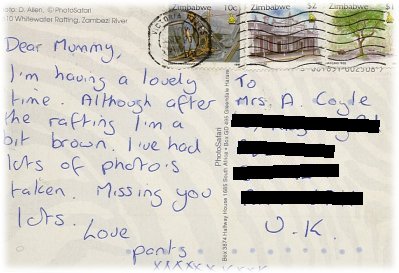 Photo: D. Allen, © PhotoSafari
10 Whitewater Rafting, Zambezi River
VICTORIA FALLS
Zimbabwe 10c
Zimbabwe $2
Zimbabwe $1
Dear Mummy,
I'm having a lovely
time. Although after
the rafting I'm a
bit brown. I've had
lots of photo's
taken. Missing you
lots.
Love
pants
xxxxxxxxxx
PhotoSafari
Box 3874 Halfway House 1685 South Africa • Box GD 495 Greendale Harare
To
Mrs. A. Coyle
U.K.